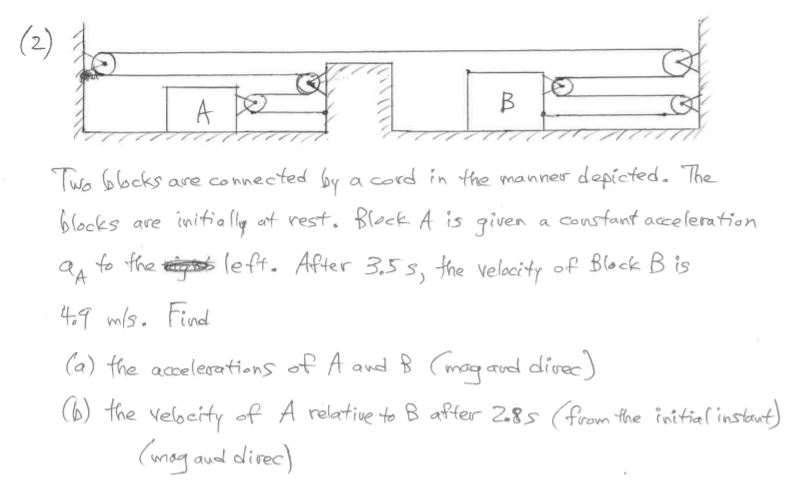 (2)
A
B
Two blocks are connected by a cord in the manner depicted. The
blocks are initially at rest. Block A is given a constant acceleration
a_A to the left. After 3.5 s, the velocity of Block B is
4.9 m/s. Find
(a) the accelerations of A and B (mag and direc)
(b) the velocity of A relative to B after 2.8 s (from the initial instant)
(mag and direc)